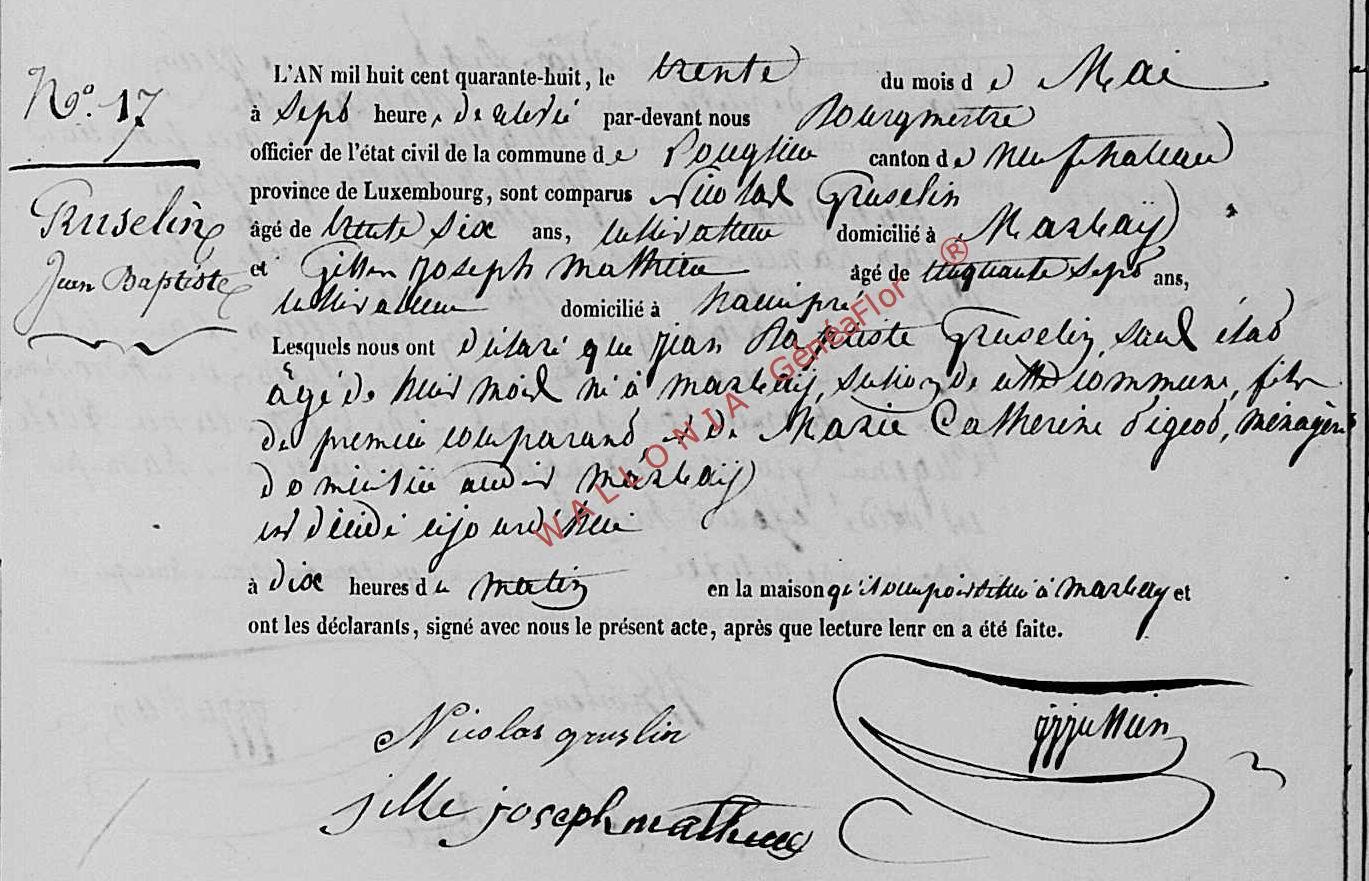 N°. 17
Gruselin
Jean Baptiste
L'AN mil huit cent quarante-huit, le trente du mois de Mai
à sept heures de relevée par-devant nous Bourgmestre
officier de l'état civil de la commune de canton de neufchateau
province de Luxembourg, sont comparus Nicolas Gruselin
âgé de trente six ans, cultivateur domicilié à Marbaÿ
et Gilles joseph mathieu âgé de cinquante sept ans,
cultivateur domicilié à hamipré
Lesquels nous ont déclaré que jean Baptiste Gruselin, sans état
âgé de huit mois né à marbaij, section de cette commune, fils
du premier comparant et de Marie Catherine pigeot, ménagère
domiciliée audit marbaij
est décédé aujourd'hui
à dix heures du matin en la maison qu'il occupoit à marbay et
ont les déclarants, signé avec nous le présent acte, après que lecture leur en a été faite.
Nicolas gruslin
jille joseph mathieu
WALLONIA GenéaFlor ®